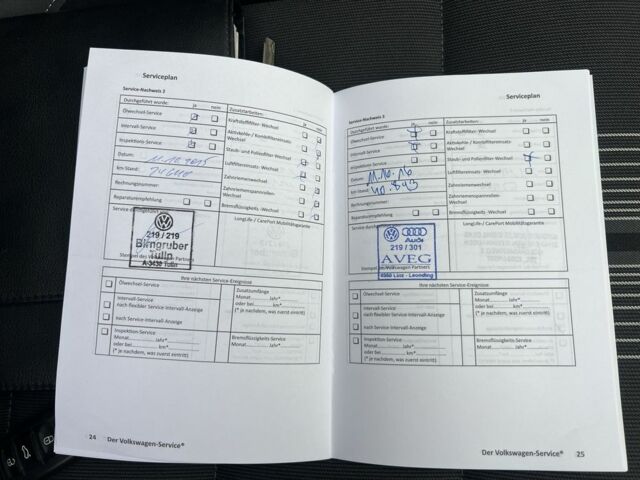 Serviceplan
Service-Nachweis 2
Durchgeführt wurde: ja nein
Zusatzarbeiten: ja nein
Ölwechsel-Service
Kraftstofffilter-Wechsel
Intervall-Service
Aktivkohle-/ Kombifiltereinsatz-
Wechsel
Inspektions-Service
Staub- und Pollenfilter-Wechsel
Datum:
Luftfiltereinsatz-Wechsel
km-Stand:
Zahnriemenwechsel
Rechnungsnummer:
Zahnriemenspannrollen-
Wechsel
Reparaturempfehlung
Bremsflüssigkeits-Wechsel
LongLife-/ CarePort Mobilitätsgarantie
219 / 219
Birngruber
Tulln
A-3430 Tulln
Stempel des Volkswagen Partners
Ihre nächsten Service-Ereignisse
Ölwechsel-Service
Zusatzumfänge
Monat...........Jahr*............
oder bei............km*............
(* je nachdem, was zuerst eintritt)
Intervall-Service
nach flexibler Service-Intervall-Anzeige
nach Service-Intervall-Anzeige
Inspektion-Service
Monat...........Jahr*............
oder bei............km*............
(* je nachdem, was zuerst eintritt)
Bremsflüssigkeits-Service
Monat...........Jahr*............
24 Der Volkswagen-Service®
Serviceplan
Service-Nachweis 3
Durchgeführt wurde: ja nein
Zusatzarbeiten: ja nein
Ölwechsel-Service
Kraftstofffilter-Wechsel
Intervall-Service
Aktivkohle-/ Kombifiltereinsatz-
Wechsel
Inspektions-Service
Staub- und Pollenfilter-Wechsel
Datum: 11.10.16
Luftfiltereinsatz-Wechsel
km-Stand: 40.843
Zahnriemenwechsel
Rechnungsnummer:
Zahnriemenspannrollen-
Wechsel
Reparaturempfehlung
Bremsflüssigkeits-Wechsel
Service durchgeführt
LongLife-/ CarePort Mobilitätsgarantie
Audi
219 / 301
AVEG
4060 Linz - Leonding
Stempel des Volkswagen Partners
Ihre nächsten Service-Ereignisse
Ölwechsel-Service
Zusatzumfänge
Monat...........Jahr*............
oder bei............km*............
(* je nachdem, was zuerst eintritt)
Intervall-Service
nach flexibler Service-Intervall-Anzeige
nach Service-Intervall-Anzeige
Inspektion-Service
Monat...........Jahr*............
oder bei............km*............
(* je nachdem, was zuerst eintritt)
Bremsflüssigkeits-Service
Monat...........Jahr*............
Der Volkswagen-Service® 25